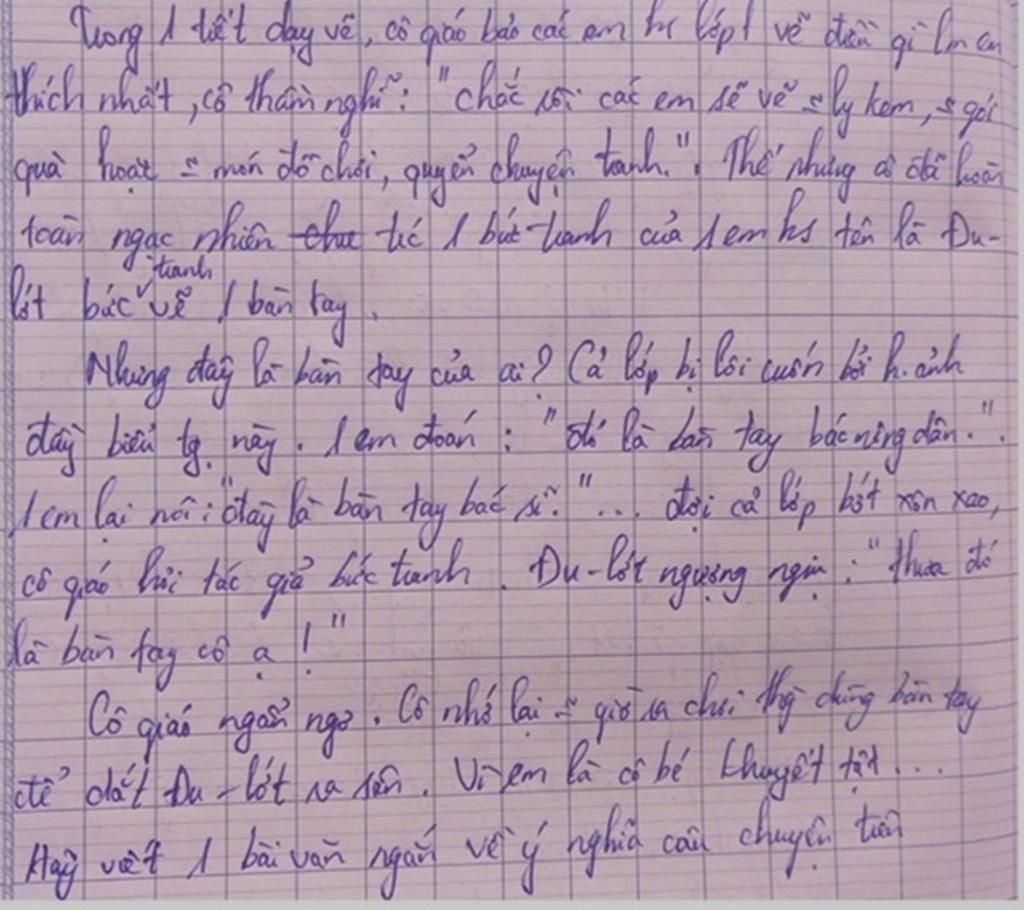 Trong 1 tiết dạy vẽ, cô giáo bảo các em hs lớp 1 vẽ điều gì làm em
thích nhất, cô thầm nghĩ: "chắc rồi các em sẽ vẽ = ly kem, = gói
quà hoặc = món đồ chơi, quyển chuyện tranh.". Thế nhưng cô đã hoàn
toàn ngạc nhiên trc 1 bức tranh của 1 em hs tên là Đu-
lớt bức tranh vẽ 1 bàn tay.
Nhưng đây là bàn tay của ai? Cả lớp bị lôi cuốn bởi h.ảnh
đầy biểu tg. này. 1 em đoán: "đó là bàn tay bác nông dân.".
1 em lại nói: "đây là bàn tay bác sĩ."... đợi cả lớp bớt xôn xao,
cô giáo hỏi tác giả bức tranh. Đu-lớt ngượng ngịu: "thưa đó
là bàn tay cô ạ!"
Cô giáo ngẩn ngơ. Cô nhớ lại = giờ ra chơi thg dùng bàn tay
để dắt Đu-lớt ra sân. Vì em là cô bé khuyết tật...
Hãy viết 1 bài văn ngắn về ý nghĩa câu chuyện trên